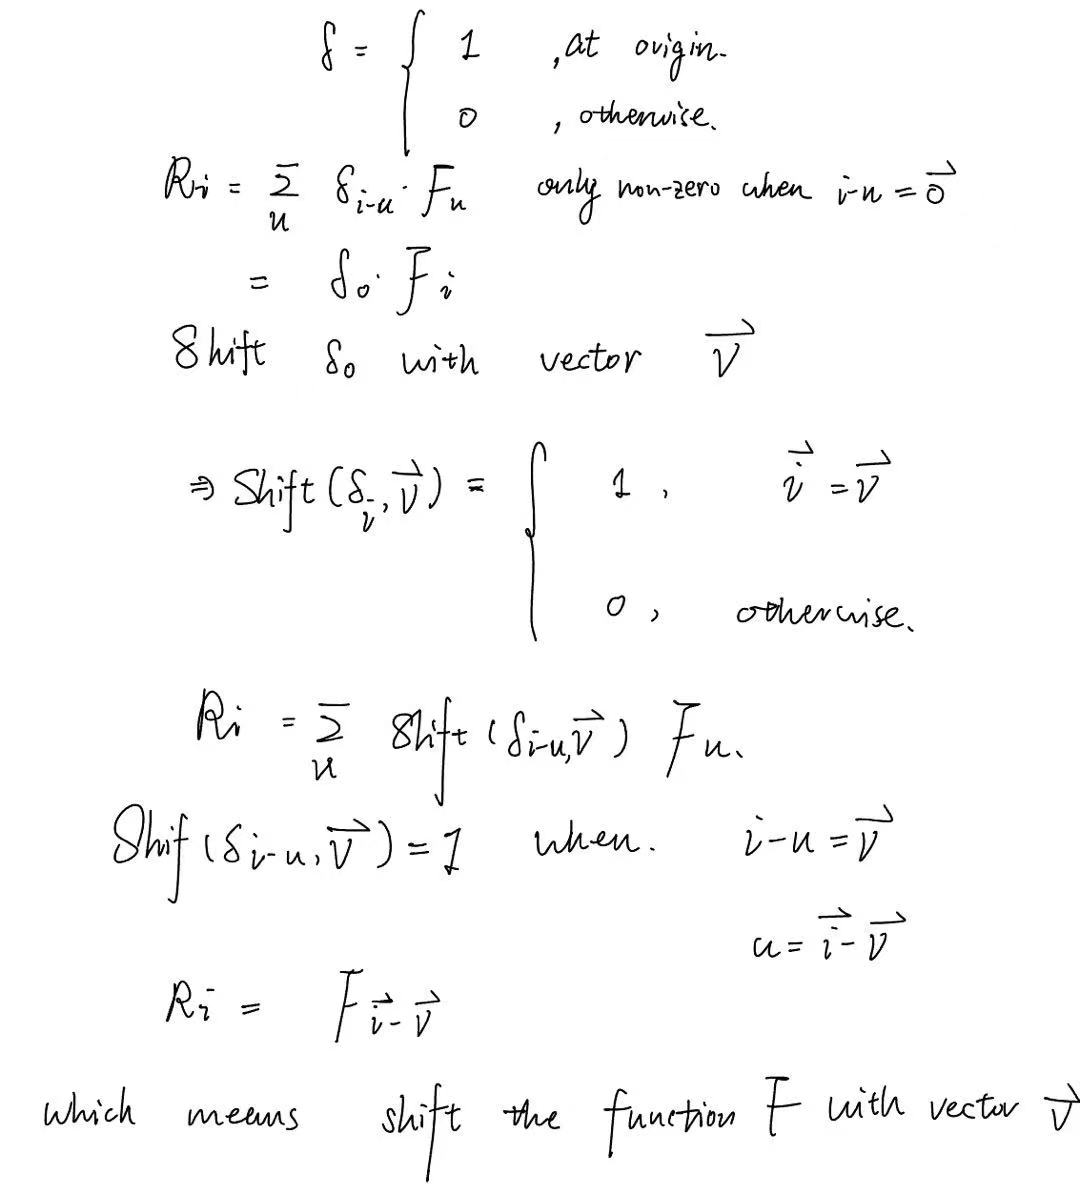 δ = { 1 , at origin.
0 , otherwise.
Ri = Σ_u δ_{i-u} · F_u only non-zero when i-u = \vec{0}
= δ_0 · F_i
Shift δ_0 with vector \vec{V}
⇒ Shift (δ_i, \vec{V}) = { 1 , \vec{i} = \vec{V}
0 , otherwise.
Ri = Σ_u Shift (δ_{i-u}, \vec{V}) F_u.
Shif (δ_{i-u}, \vec{V}) = 1 when. i-u = \vec{V}
u = \vec{i} - \vec{V}
Ri = F_{\vec{i}-\vec{V}}
which means shift the function F with vector \vec{V}